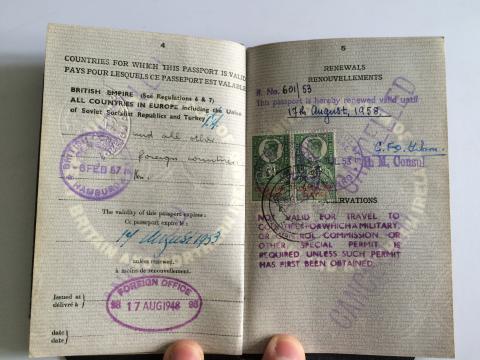 4
COUNTRIES FOR WHICH THIS PASSPORT IS VALID
PAYS POUR LESQUELS CE PASSEPORT EST VALABLE
BRITISH EMPIRE (See Regulations 6 & 7)
ALL COUNTRIES IN EUROPE including the Union
of Soviet Socialist Republics and Turkey
and all other
foreign countries
BRITISH
6 FEB 57
HAMBURG
The validity of this passport expires:
Ce passeport expire le:
17 August 1953
unless renewed.
à moins de renouvellement.
Issued at
délivré à
FOREIGN OFFICE
98 17 AUG 1948 98
date
date
5
RENEWALS
RENOUVELLEMENTS
R. No. 601/53
This passport is hereby renewed valid until
17th August, 1958.
CANCELLED
H. M. Consul
OBSERVATIONS
NOT VALID FOR TRAVEL TO
COUNTRIES FOR WHICH A MILITARY
OR CONTROL COMMISSION OR
OTHER SPECIAL PERMIT IS
REQUIRED UNLESS SUCH PERMIT
HAS FIRST BEEN OBTAINED.